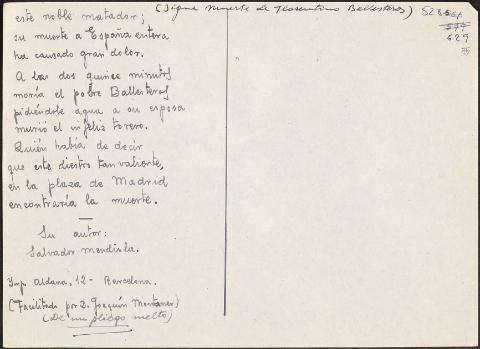 (Sigue Muerte de Florentino Ballesteros)
este noble matador;
su muerte a España entera
ha causado gran dolor.
A las dos quince minutos
moría el pobre Ballesteros
pidiéndole agua a su esposa
murió el infeliz torero.
Quién había de decir
que este diestro tan valiente,
en la plaza de Madrid
encontraría la muerte.
Su autor:
Salvador Mendiola.
Imp. Aldana, 12 - Barcelona.
(Facilitado por D. Joaquín Montaner)
(De un pliego suelto)
629